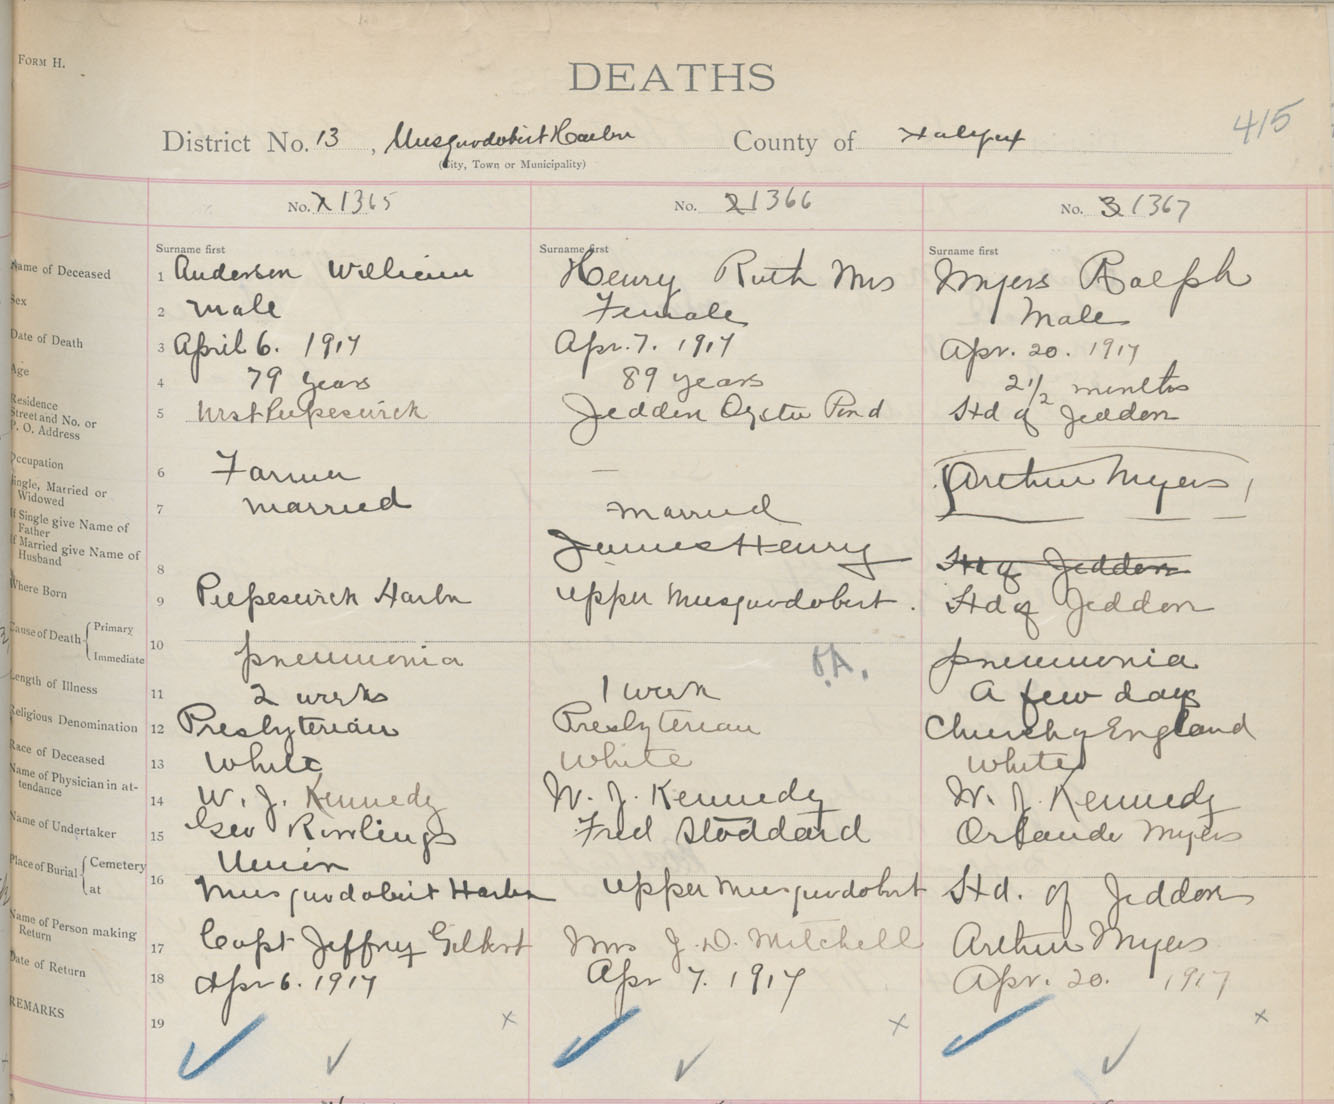 FORM H.
DEATHS
415
District No. 13, Musquodoboit Harbor County of Halifax
(City, Town or Municipality)
No. 1 1365 No. 2 1366 No. 3 1367
Surname first Surname first Surname first
Name of Deceased 1 Anderson William Henry Ruth Mrs Myers Ralph
Sex 2 Male Female Male
Date of Death 3 April 6. 1917 Apr. 7. 1917 Apr. 20. 1917
Age 4 79 years 89 years 2 1/2 months
Residence
Street and No. or
P. O. Address 5 West Petpeswick Jeddore Oyster Pond Hd of Jeddore
Occupation 6 Farmer — (Arthur Myers)
Single, Married or
Widowed 7 married married
If Single give Name of
Father
If Married give Name of
Husband 8 James Henry Hd of Jeddore
Where Born 9 Petpeswick Harbor Upper Musquodoboit. Hd of Jeddore
Cause of Death { Primary
Immediate 10 pneumonia O.A. pneumonia
Length of Illness 11 2 weeks 1 week A few days
Religious Denomination 12 Presbyterian Presbyterian Church of England
Race of Deceased 13 White White White
Name of Physician in at-
tendance 14 W. J. Kennedy W. J. Kennedy W. J. Kennedy
Name of Undertaker 15 Geo Rowlings Fred Stoddard Orlando Myers
Place of Burial { Cemetery Union
at 16 Musquodoboit Harbor Upper Musquodoboit Hd. of Jeddore
Name of Person making
Return 17 Capt Jeffrey Gilbert Mrs J. D. Mitchell Arthur Myers
Date of Return 18 Apr 6. 1917 Apr 7. 1917 Apr. 20. 1917
REMARKS 19 x x x